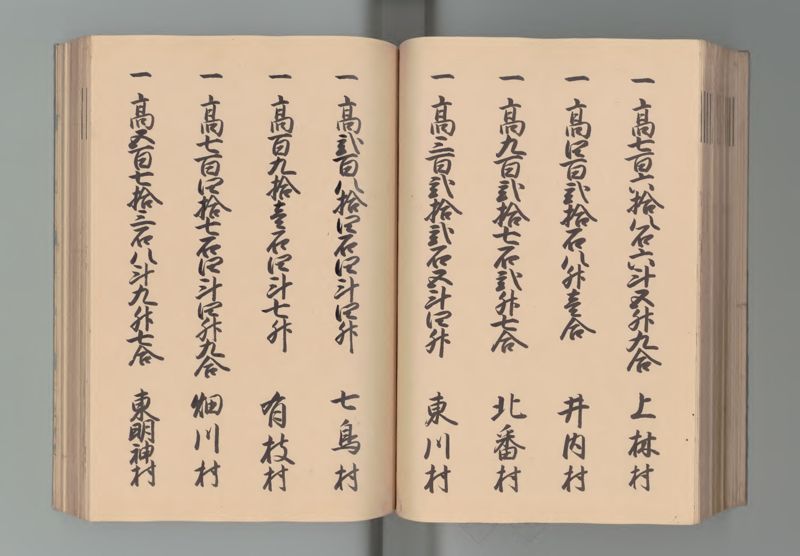 一 高七百六拾八石六斗五升九合 上林村
一 高四百弐拾石八升壱合 井内村
一 高九百弐拾七石弐升七合 北番村
一 高三百弐拾弐石五斗四升 東川村
一 高弐百八拾四石四斗四升 七鳥村
一 高百九拾壱石四斗七升 有枝村
一 高七百四拾七石四斗四升九合 畑川村
一 高五百七拾三石八斗九升七合 東明神村